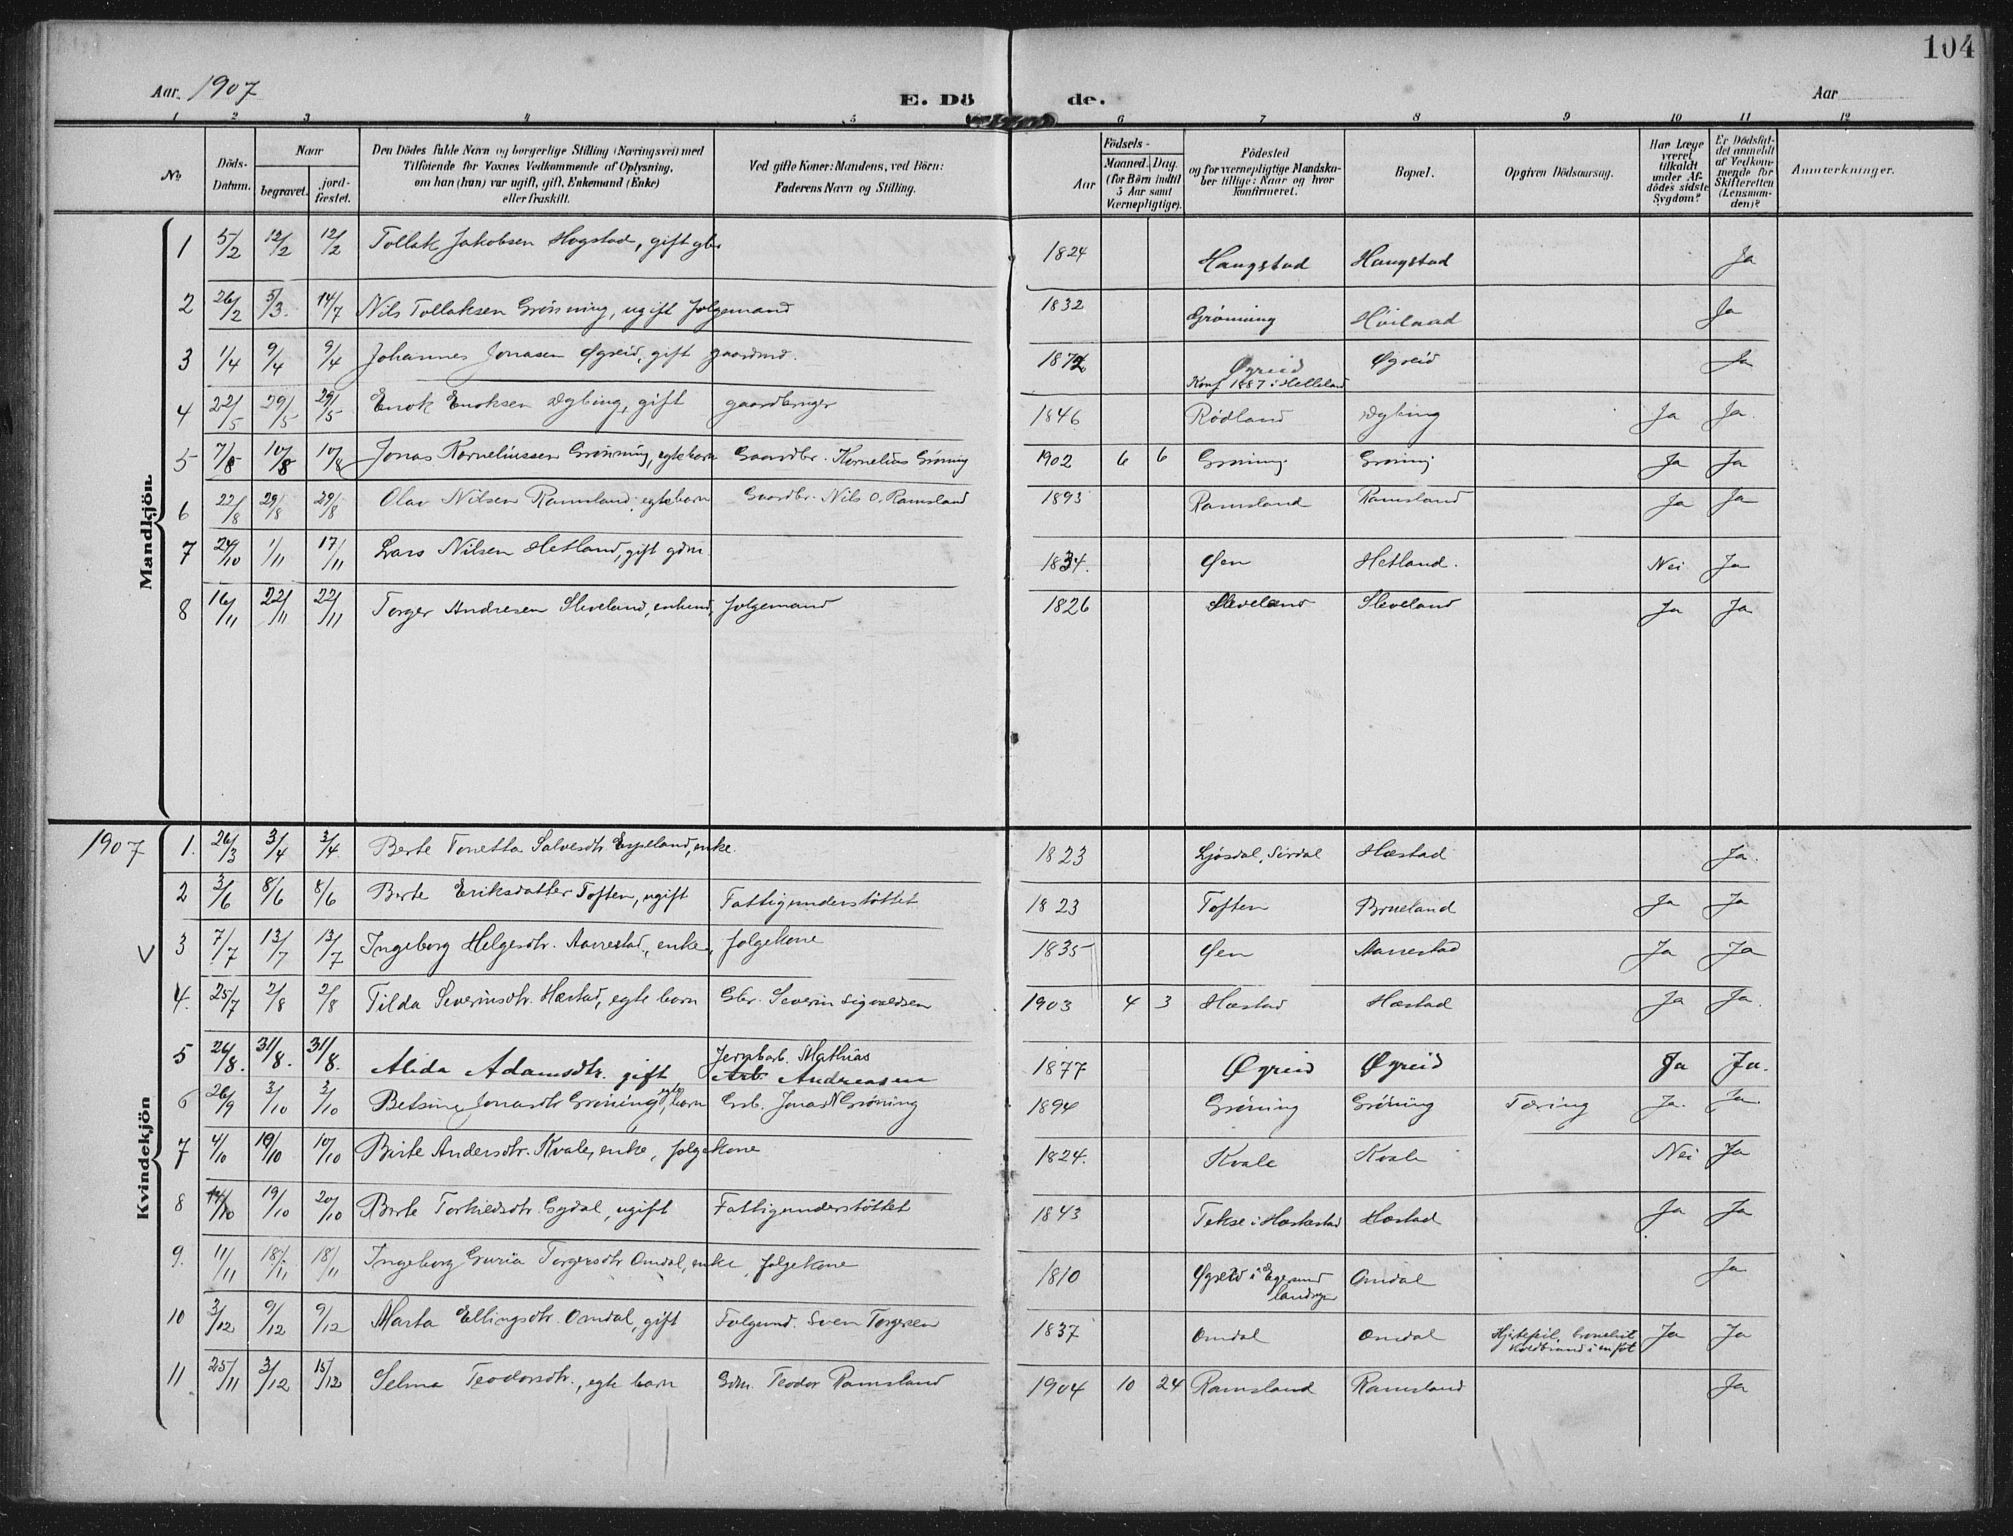 104
Aar. 1907 E. Dö de. Aar
1 2 3 4 5 6 7 8 9 10 11 12
No. Döds-Datum. Naar begravet. jord-fæstet. Den Dödes fulde Navn og borgerlige Stilling (Næringsvei) med Tilföiende for Voxnes Vedkommende af Oplysning, om han (hun) var ugift, gift, Enkemand (Enke) eller fraskilt. Ved gifte Koner: Mandens, ved Börn: Faderens Navn og Stilling. Födsels- Aar Maaned. Dag. (for Börn indtil 5 Aar samt Værnepligtige). Födested og for værnepligtige Mandskaber tillige: Naar og hvor konfirmeret. Bopæl. Opgiven Dödsaarsag. Har Læge været tilkaldt under Afdödes sidste Sygdom? Er Dödsfaldet anmeldt af Vedkommende for Skifteretten (Lensmanden)? Anmærkninger.
Mandkjön.
1 5/2 12/2 12/2 Tollak Jakobsen Hogstad, gift gbr 1824 Haugstad Haugstad Ja
2 26/2 5/3. 14/7 Nils Tollaksen Grönning, ugift folgemand 1832 Grönning Höiland Ja
3 1/4 9/4 9/4 Johannes Jonasen Øgreid, gift gaardmd. 1872 Øgreid Konf 1887 i Helleland Øgreid Ja
4 22/5 29/5 29/5 Enok Enoksen Dybing, gift gaardbruger 1846 Rødland Dybing Ja Ja
5 7/8 10/8 10/8 Jonas Korneliussen Grönning, egte barn Gaardbr. Kornelius Gröning 1902 6 6 Gröning Gröning Ja Ja
6 22/8 29/8 29/8 Olav Nilsen Ramsland, egte barn Gaardbr. Nils O. Ramsland 1893 Ramsland Ramsland Ja Ja
7 24/10 1/11 17/11 Lars Nilsen Hetland, gift gdm 1834. Øen Hetland. Nei Ja
8 16/11 22/11 22/11 Torger Andresen Sleveland, enkmd, folgemand 1826 Sleveland Sleveland Ja Ja
1907
Kvindekjön
1. 26/3 3/4 3/4 Berte Tonetta Salvesdtr Espeland, enke. 1823 Ljosdal, Sirdal Hæstad Ja.
2 3/6 8/6 8/6 Berte Eriksdatter Toften, ugift Fattigunderstöttet 1823 Toften Brueland Ja Ja
3 7/7 13/7 13/7 Ingeborg Helgesdtr. Aarrestad, enke, folgekone 1835 Øen Aarrestad Ja Ja
4. 25/7 2/8 2/8 Tilda Severinsdtr. Hæstad, egte barn Gbr. Severin Sigvaldsen 1903 4 3 Hæstad Hæstad Ja Ja.
5 26/8. 31/8. 31/8. Alida Adamsdtr. gift Jernbarb. Mathias Arb. Andreasen 1877 Øgreid Øgreid Ja Ja.
6 26/9 3/10 3/10 Betsine Jonasdtr Gröning, egte barn Grb. Jonas N Gröning 1894 Gröning Gröning Tæring Ja. Ja.
7 4/10 19/10 10/10 Birte Andersdtr. Kvale, enke, folgekone 1824. Kvale Kvale Nei Ja
8 14/10 19/10 20/10 Berte Torkildsdtr. Eydal, ugift Fattigunderstöttet 1843 Tekse i Hæskestad Hæstad Ja Ja
9. 11/11 18/11 18/11 Ingeborg Guria Torgersdtr Omdal, enke, folgekone 1810 Øgreid i Egersund landsogn Omdal Ja
10 3/12 9/12 9/12 Marta Ellingsdtr. Omdal, gift Folgmd. Sven Torgersen 1837 Omdal Omdal Hjertefeil, bronchit Koldbrand i en fot Ja Ja
11 25/11 3/12 15/12 Selma Teodorsdtr., egte barn Gdm. Teodor Ramsland 1904 10 24 Ramsland Ramsland Ja